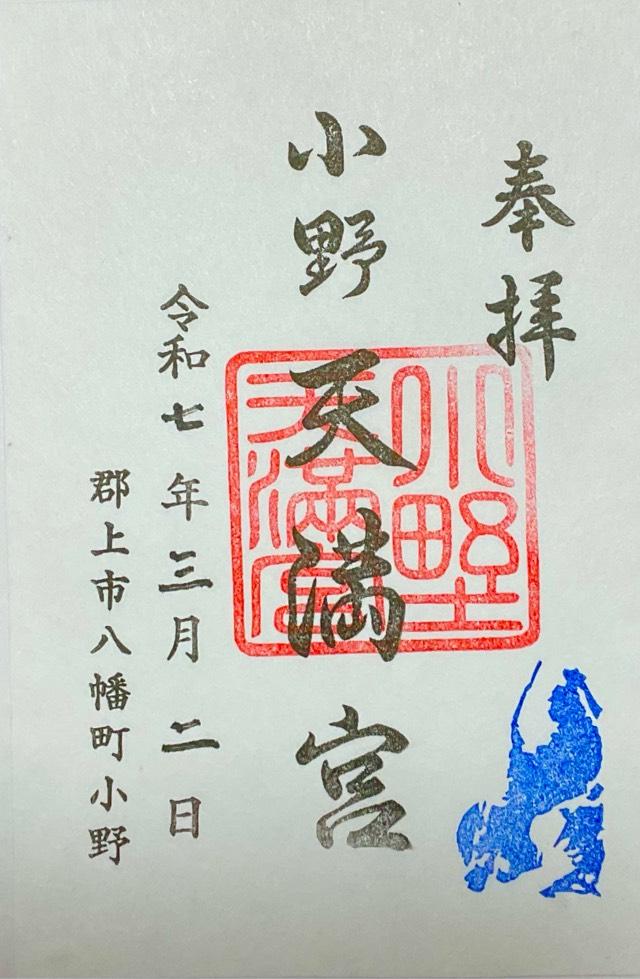 奉拝
小野天満宮
小野
天満宮
令和七年三月二日
郡上市八幡町小野